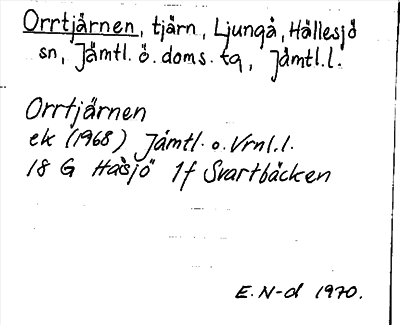 Orrtjärnen, tjärn, Ljungå, Hällesjö
sn, Jämtl. ö. doms. tg, Jämtl.l.
Orrtjärnen
ek (1968) Jämtl. o. Vrnl.l.
18 G Hasjö 1f Svartbäcken
E. N-d 1970.